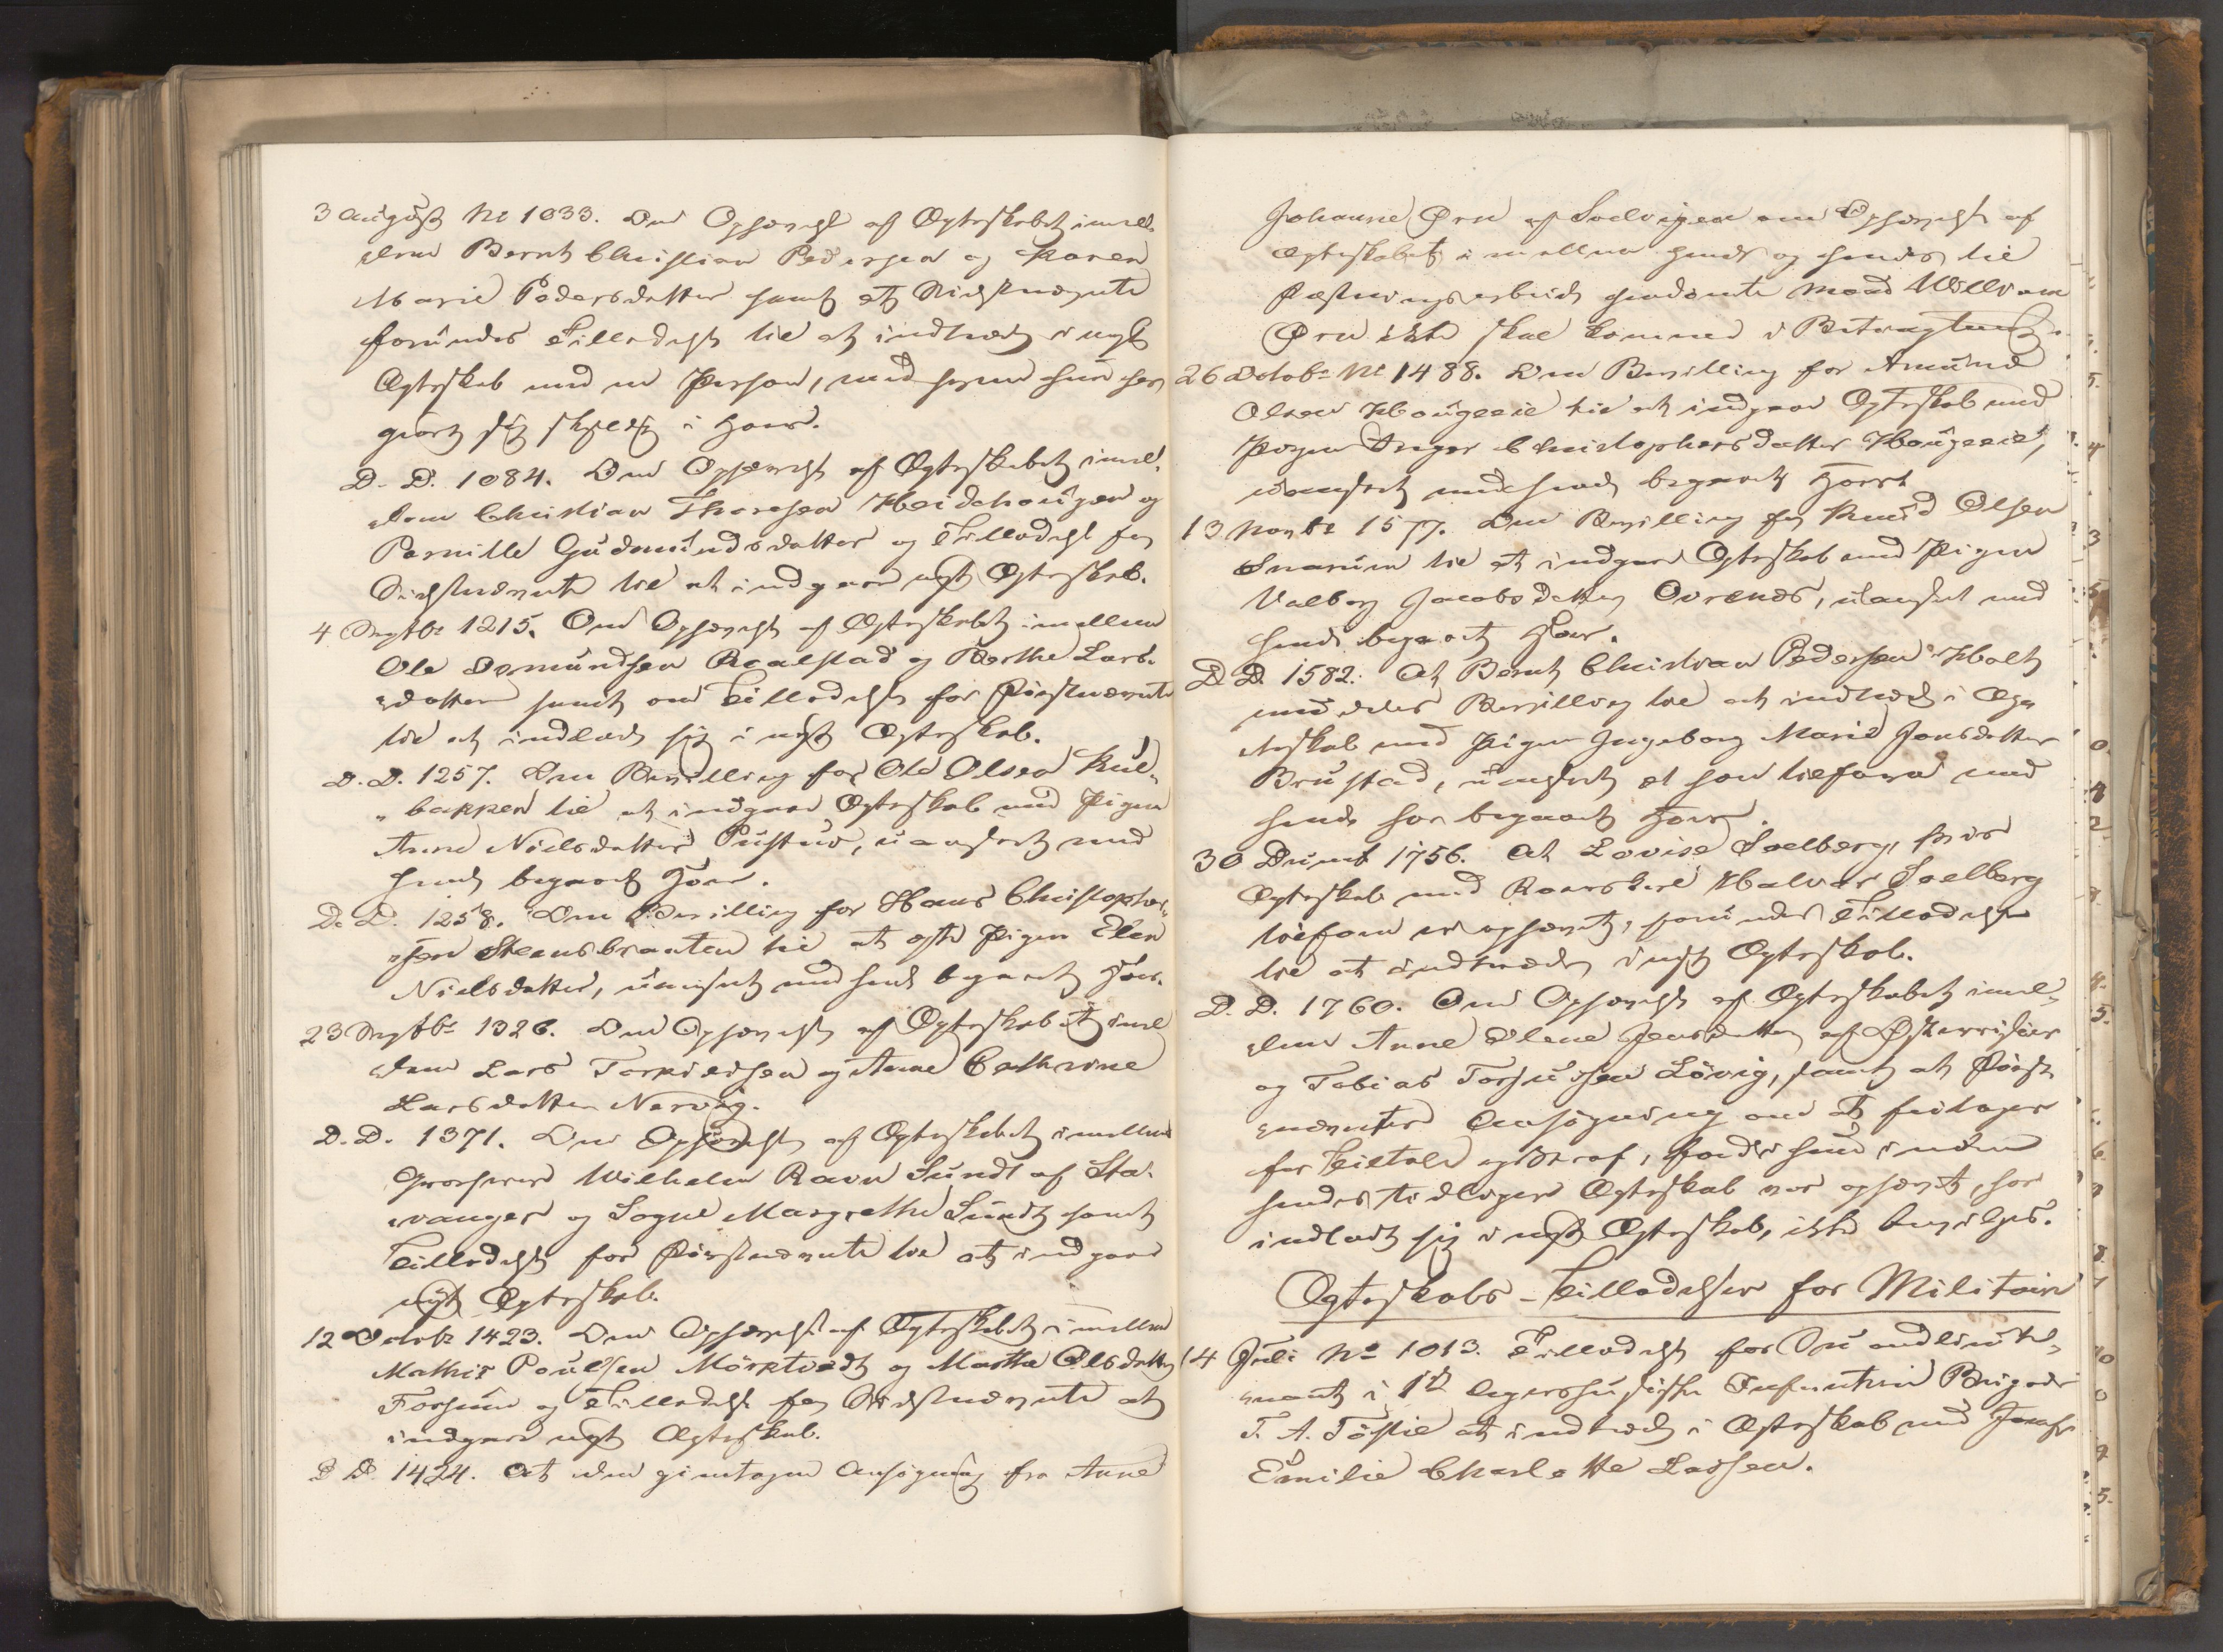 3 August No 1033. Om Ophævelse af Ægteskabet imel-
lem Bernt Christian Pedersen og Karen
Marie Pedersdatter samt at Sidstnævnte
forundes Tilladelse til at indtræde i nyt
Ægteskab med en Person, med hvem hun har
gjort sig skyldig i Hoer.
D. D. 1084. Om Ophævelse af Ægteskabet imel-
lem Christian Thoresen Heidehaugen og
Pernille Gudmundsdatter og Tilladelse for
Sidstnævnte til at indgaae nyt Ægteskab.
4 Septbr 1215. Om Ophævelse af Ægteskabet imellem
Ole Osmundsen Realstad og Berthe Lars-
datter samt om Tilladelse for Førstnævnte
til at indlade sig i nyt Ægteskab.
D. D. 1257. Om Bevilling for Ole Olsen Kul-
bakken til at indgaae Ægteskab med Pigen
Anne Nielsdatter Pustuo, uanseet med
hende begaaet Hoer.
D. D. 1258. Om Bevilling for Hans Christopher-
sen Steensbraaten til at ægte Pigen Elen
Nielsdatter, uanseet med hende begaaet Hoer.
23 Septbr 1326. Om Ophævelse af Ægteskabet imel
lem Lars Torkildsen og Anne Cathrine
Larsdatter Narvig.
D. D. 1371. Om Ophævelse af Ægteskabet imellem
Grosserer Wilhelm Ravn Sundt af Sta-
vanger og Sogne Margrethe Sundt samt
Tilladelse for Førstnævnte til at indgaae
nyt Ægteskab.
12 Octobr 1423. Om Ophævelse af Ægteskabet imellem
Mathis Poulsen Mørktvedt og Marthe Olsdatter
Forsum og Tilladelse for Sidstnævnte at
indgaae nyt Ægteskab.
D D 1424. At den gjentagne Ansøgning fra Anne
Johanne Ørn af Soelvigen om Ophævelse af
Ægteskabet imellem hende og hendes til
Fæstningsarbeide hendømte Mand William
Ørn ikke skal komme i Betragtning.
26 Octobr No 1488. Om Bevilling for Amund
Olsen Haugerie til at indgaae Ægteskab med
Pigen Inger Christophersdatter Haugerie,
uanseet med hende begaaet Hoer.
13 Novbr 1577. Om Bevilling for Knud Olsen
Snarum til at indgaae Ægteskab med Pigen
Valborg Jacobsdatter Ovrenæs, uanseet med
hende begaaet Hoer.
D D. 1582. At Bernt Christian Pedersen Holt
meddeles Bevilling til at indtræde i Æg-
teskab med Pigen Ingeborg Marie Jonsdatter
Brustad, uanseet at han tilforn med
hende har begaaet Hoer.
30 Decemb 1756. At Lovise Soelberg, hvis
Ægteskab med Halvor Soelberg
tilforn er ophævet, forundes Tilladelse
til at indtræde i nyt Ægteskab.
D. D. 1760. Om Ophævelse af Ægteskabet imel-
lem Anne Olene Jensdatter af Østerrisøer
og Tobias Torjusen Løvig, samt at Først-
nævntes Ansøgning om at fritages
for Tiltale og Straf, fordi hun inden
hendes tidligere Ægteskab var ophævet, har
indladt sig i nyt Ægteskab, ikke bevilges.
Ægteskabs-Tilladelser for Militaire
14 Juli No 1013. Tilladelse for Secondlieute-
nant i 1ste Aggershusiske Infanterie Brigade
T. A. Tostie at indtræde i Ægteskab med Jomfru
Emilie Charlotte Lassen.